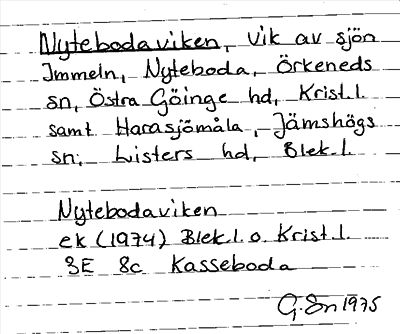 Nytebodaviken, vik av sjön
Immeln, Nyteboda, Örkeneds
sn, Östra Göinge hd, Krist.l.
samt Harasjömåla, Jämshögs
sn, Listers hd, Blek.l.
Nytebodaviken
ek (1974) Blek.l. o. Krist.l.
3E 8c Kasseboda
G. Sn 1975